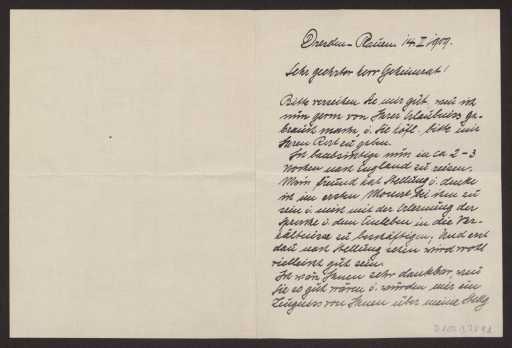 Dresden-Plauen 14.I.1909.
Sehr geehrter Herr Geheimrat!
Bitte verzeihen Sie mir gut, wenn ich
nun gern von Ihrer Erlaubniss ge-
brauch mache, u. Sie höfl. bitte mir
Ihren Rat zu geben.
Ich beabsichtige nun in ca 2-3
Wochen nach England zu reisen.
Mein Freund hat Stellung u. denke
ich im ersten Monat bei ihm zu
sein u. mich mit der Erlernung der
Sprache u. dem Einleben in die Ver-
hältnisse zu beschäftigen. Und erst
dann nach Stellung sehen wird wohl
vielleicht gut sein.
Ich wär Ihnen sehr dankbar, wenn
Sie so gut wären u. würden mir ein
Zeugniss von Ihnen über meine